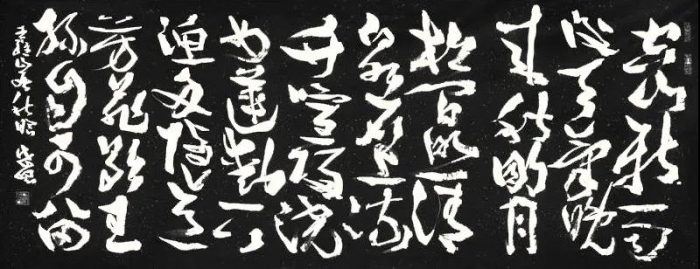 空山新雨
後天氣晚
来秋明月
松间照清
泉石上流
竹喧歸浣
女蓮動下
渔舟随意
春芳歇王
孫自可留
王维山居秋暝